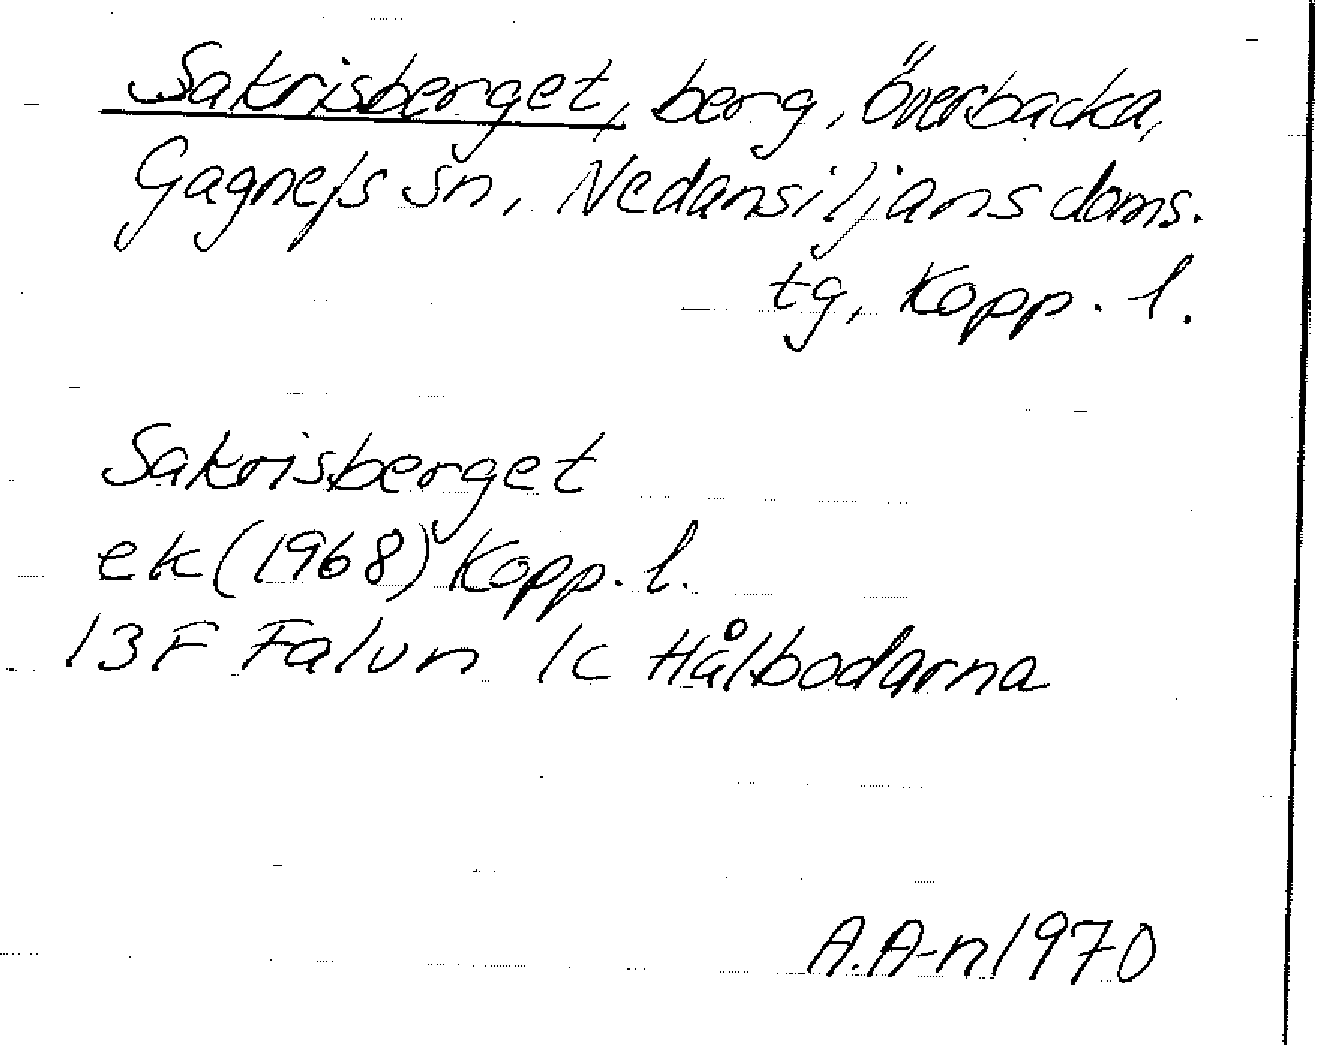 Sakrisberget, berg, Överbacka,
Gagnefs sn, Nedansiljans doms.
tg, Kopp. l.
Sakrisberget
ek (1968) Kopp. l.
13F Falun 1c Hålbodarna
A.A-n 1970